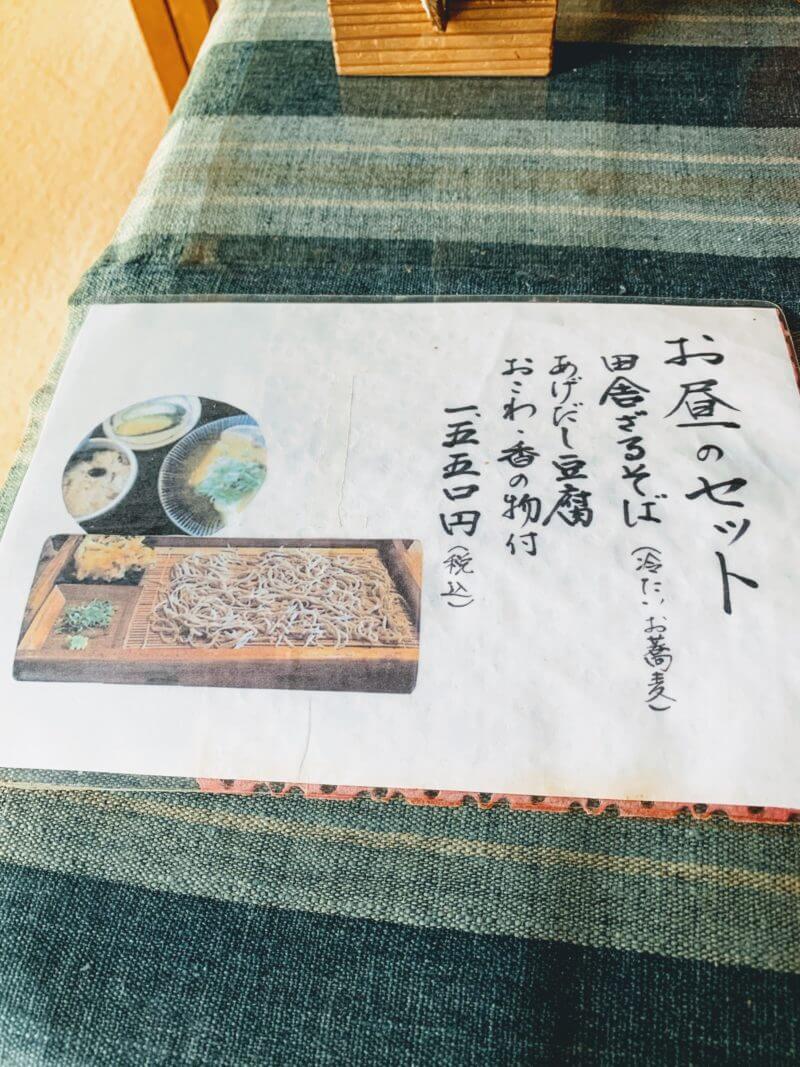 お昼のセット
田舎ざるそば（冷たいお蕎麦）
あげだし豆腐
おこわ・香の物付
一、五五〇円（税込）